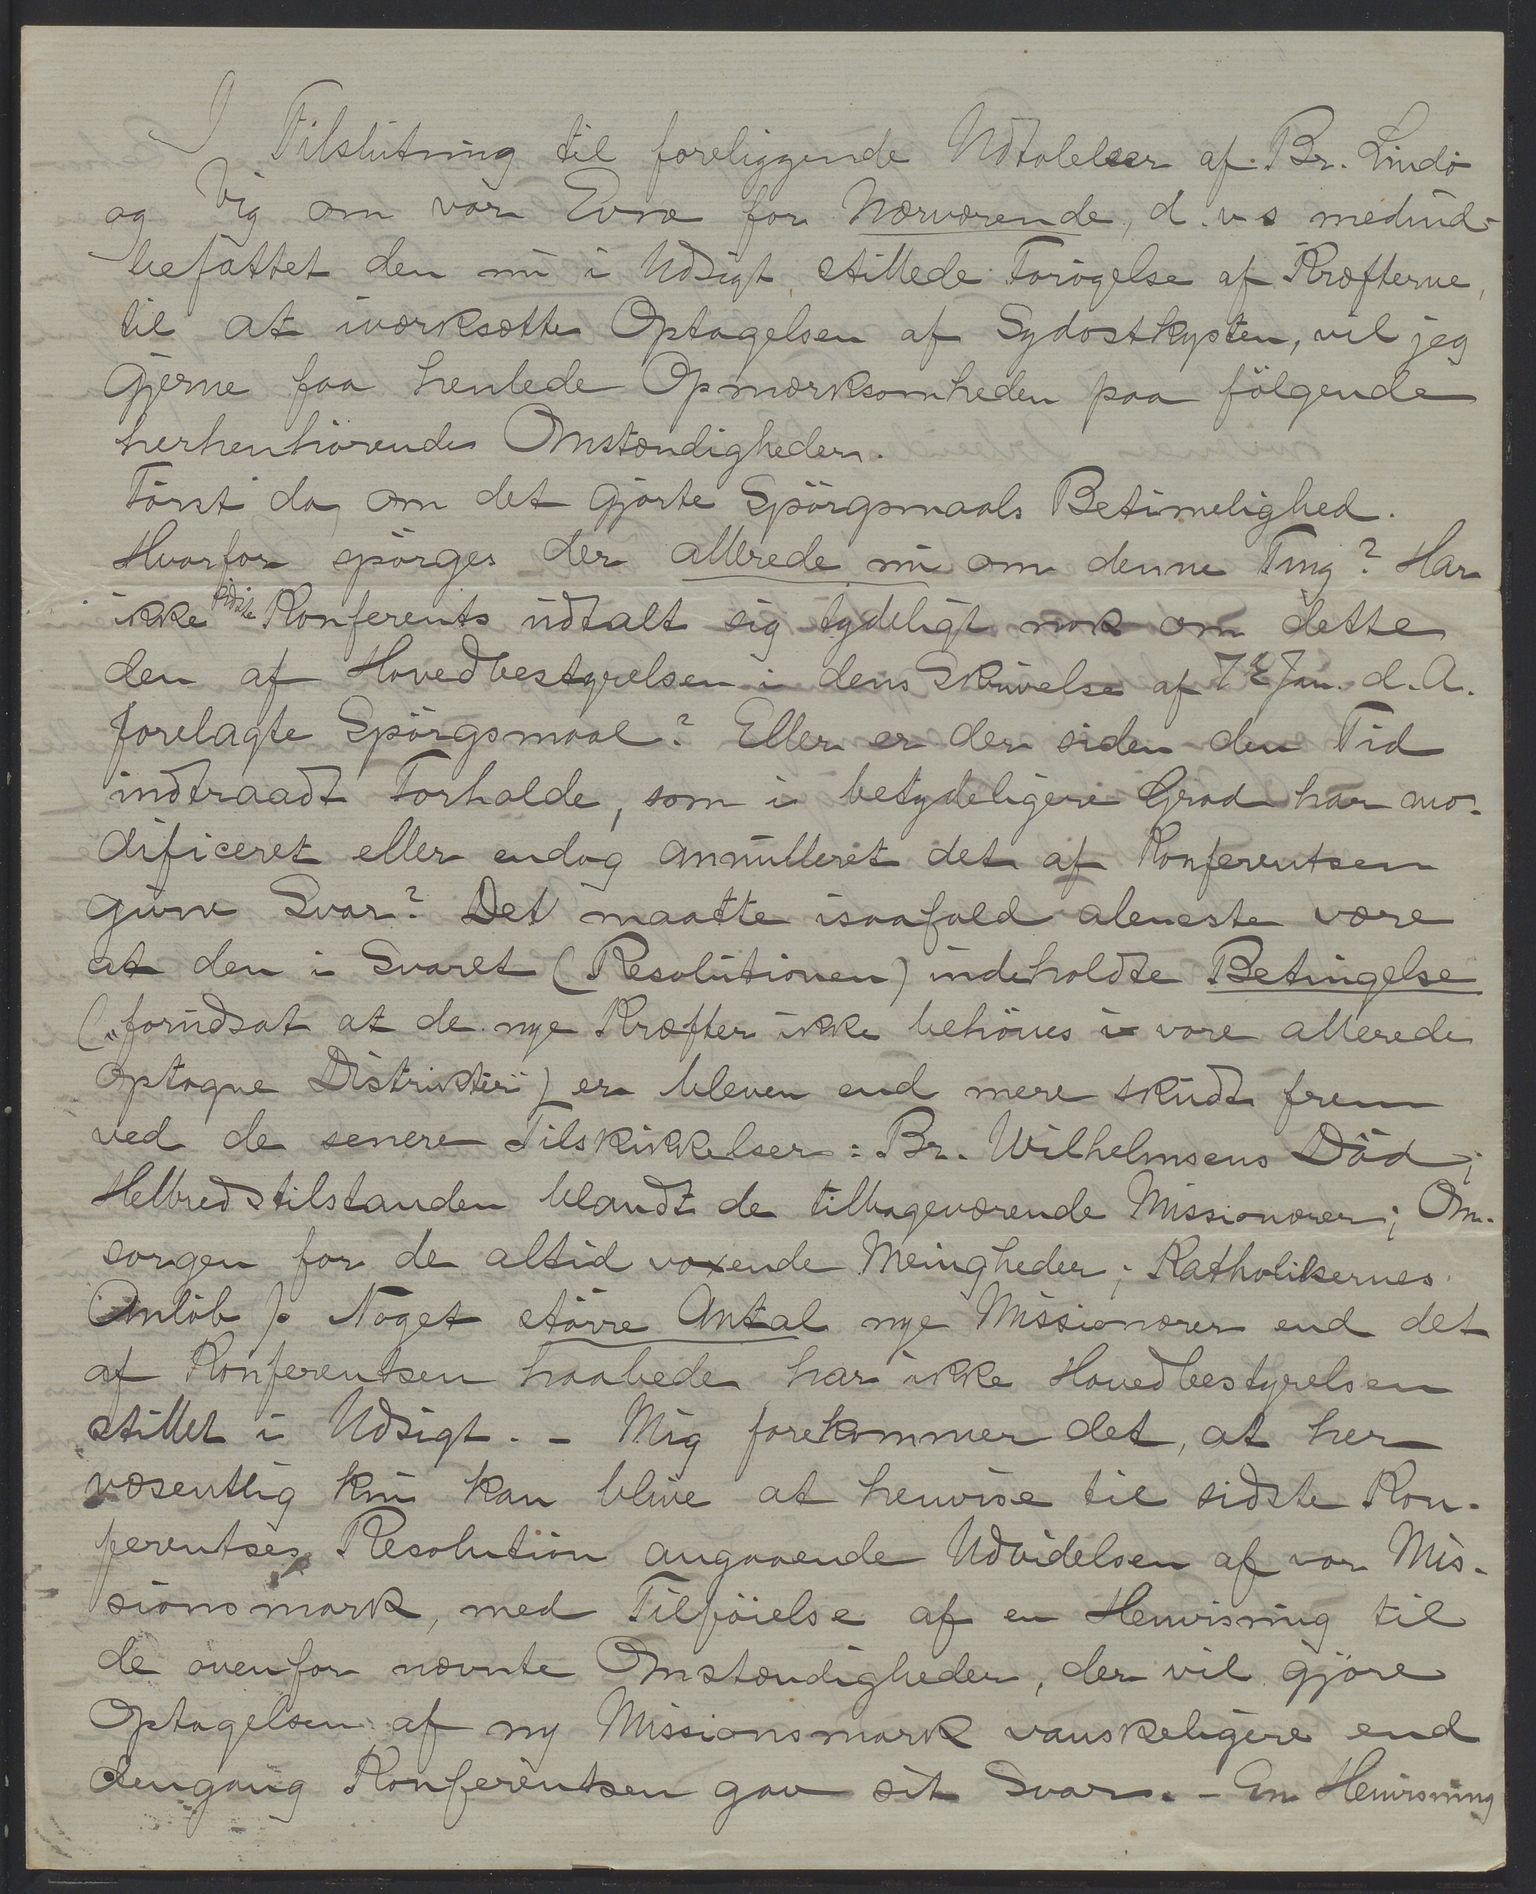 I Tilslutning til foreliggende Udtalelser af Br. Lindø
og Vig om vor Evne for Nærværende, d.v.s medind-
befattet den nu i Udsigt stillede Forøgelse af Kræfterne,
til at iværksætte Optagelsen af Sydostkysten, vil jeg
gjerne faa henlede Opmærksomheden paa følgende
herhenhørende Omstændigheder.
Først da om det gjorte Spørgsmaals Betimelighed.
Hvorfor spørges der allerede nu om denne Ting? Har
ikke sidste Konferents udtalt sig tydeligt nok om dette
den af Hovedbestyrelsen i dens Skrivelse af 7de Jan. d. A.
forelagte Spørgsmaal? Eller er der siden den Tid
indtraadt Forholde, som i betydeligere Grad har mo-
dificeret eller endog annulleret det af Konferentsen
givne Svar? Det maatte isaafald aleneste være
at den i Svaret (Resolutionen) indeholdte Betingelse
(„forudsat at de nye Kræfter ikke behøves i vore allerede
optagne Distrikter") er bleven end mere skudt frem
ved de senere Tilskikkelser: Br. Wilhelmsens Død;
Helbredstilstanden blandt de tilbageværende Missionærer; Om-
sorgen for de altid voxende Menigheder; Katholikernes
Anløb p. Noget større Antal nye Missionærer end det
af Konferentsen haabede har ikke Hovedbestyrelsen
stillet i Udsigt. - Mig forekommer det, at her
væsentlig kun kan blive at henvise til sidste Kon-
ferentses Resolution angaaende Udvidelsen af vor Mis-
sionsmark, med Tilføielse af en Henvisning til
de ovenfor nævnte Omstændigheder, der vil gjøre
Optagelsen af ny Missionsmark vanskeligere end
dengang Konferentsen gav sit Svar. - En Henvisning